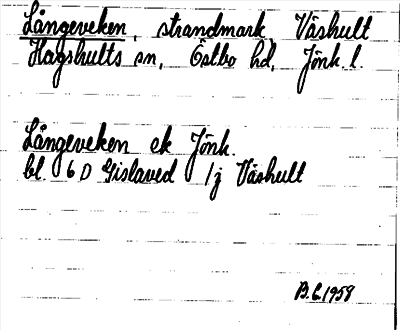 Långeveken, strandmark, Våshult
Hagshults sn, Östbo hd, Jönk. l.
Långeveken ek Jönk.
bl 6 D Gislaved 1j Våshult
B.L. 1958